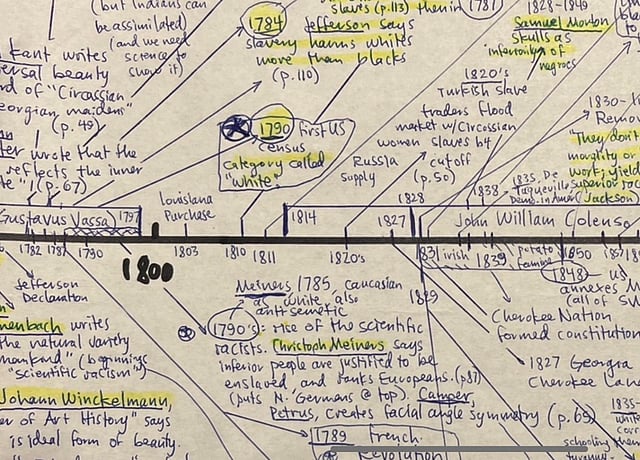 (but Indians can
be assimilated)
(and we need
science to
show it)
Kant writes
ersal beauty
rd of "Circassian
eorgian maidens"
(p. 49)
ter wrote that the
reflects the inner
te" (p. 67)
1784
Jefferson says
slavery harms whites
more than blacks
(p. 110)
slaves (p.113)
1787
1790 first US
census
category called
"white"
1828-1849
Samuel Morton
skulls as
inferiority of
negroes
1820's
Turkish slave
traders flood
market w/Circassian
women slaves b4
Russia
cutoff
supply
(p. 50)
1830-
Remov
"They don't
morality or
work; yield
superior ra
(Jackson)
1835, De
Toqueville
Dem. in Amer.
1838
1828
Gustavus Vassa
1797
Louisiana
Purchase
1814
1827
John William Colenso
1782
1787
1790
1800
1803
1810
1811
1820's
1829
1831
irish
1839
potato
famine
1850
1848
US
annexes M
(all of SW
Jefferson
Declaration
menbach writes
the natural variety
mankind" (beginnings
"scientific racism")
Johann Winckelmann,
er of Art History" says
is ideal form of beauty.
Meiners 1785, caucasian
as white, also
anti semetic
1790's: rise of the scientific
racists. Christoph Meiners says
inferior people are justified to be
enslaved, and ranks Europeans. (p87)
(puts N. Germans @ top). Camper,
Petrus, creates facial angle symmetry (p. 69)
1789 French
Revolution
Cherokee Nation
formed constitution
1827 Georgia
Cherokee Law
1835-
white
schooling